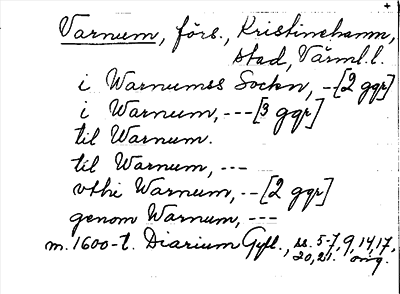 Varnum, förs., Kristinehamn,
stad, Värml. l.
i Warnumss Sockn, - [2 ggr]
i Warnum, --- [3 ggr]
til Warnum.
til Warnum, ---
vthi Warnum, -- [2 ggr]
genom Warnum, ---
m. 1600-t. Diarium Gyll., ss. 5-7, 9, 14, 17,
20, 21. orig.